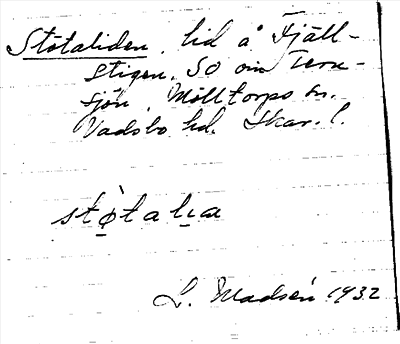 Stötaliden, lid å Fjäll-
stigen, SO om Tern-
sjön, Mölltorps sn.
Vadsbo hd. Skar. l.
stø̀talɩa
L. Madsén 1932